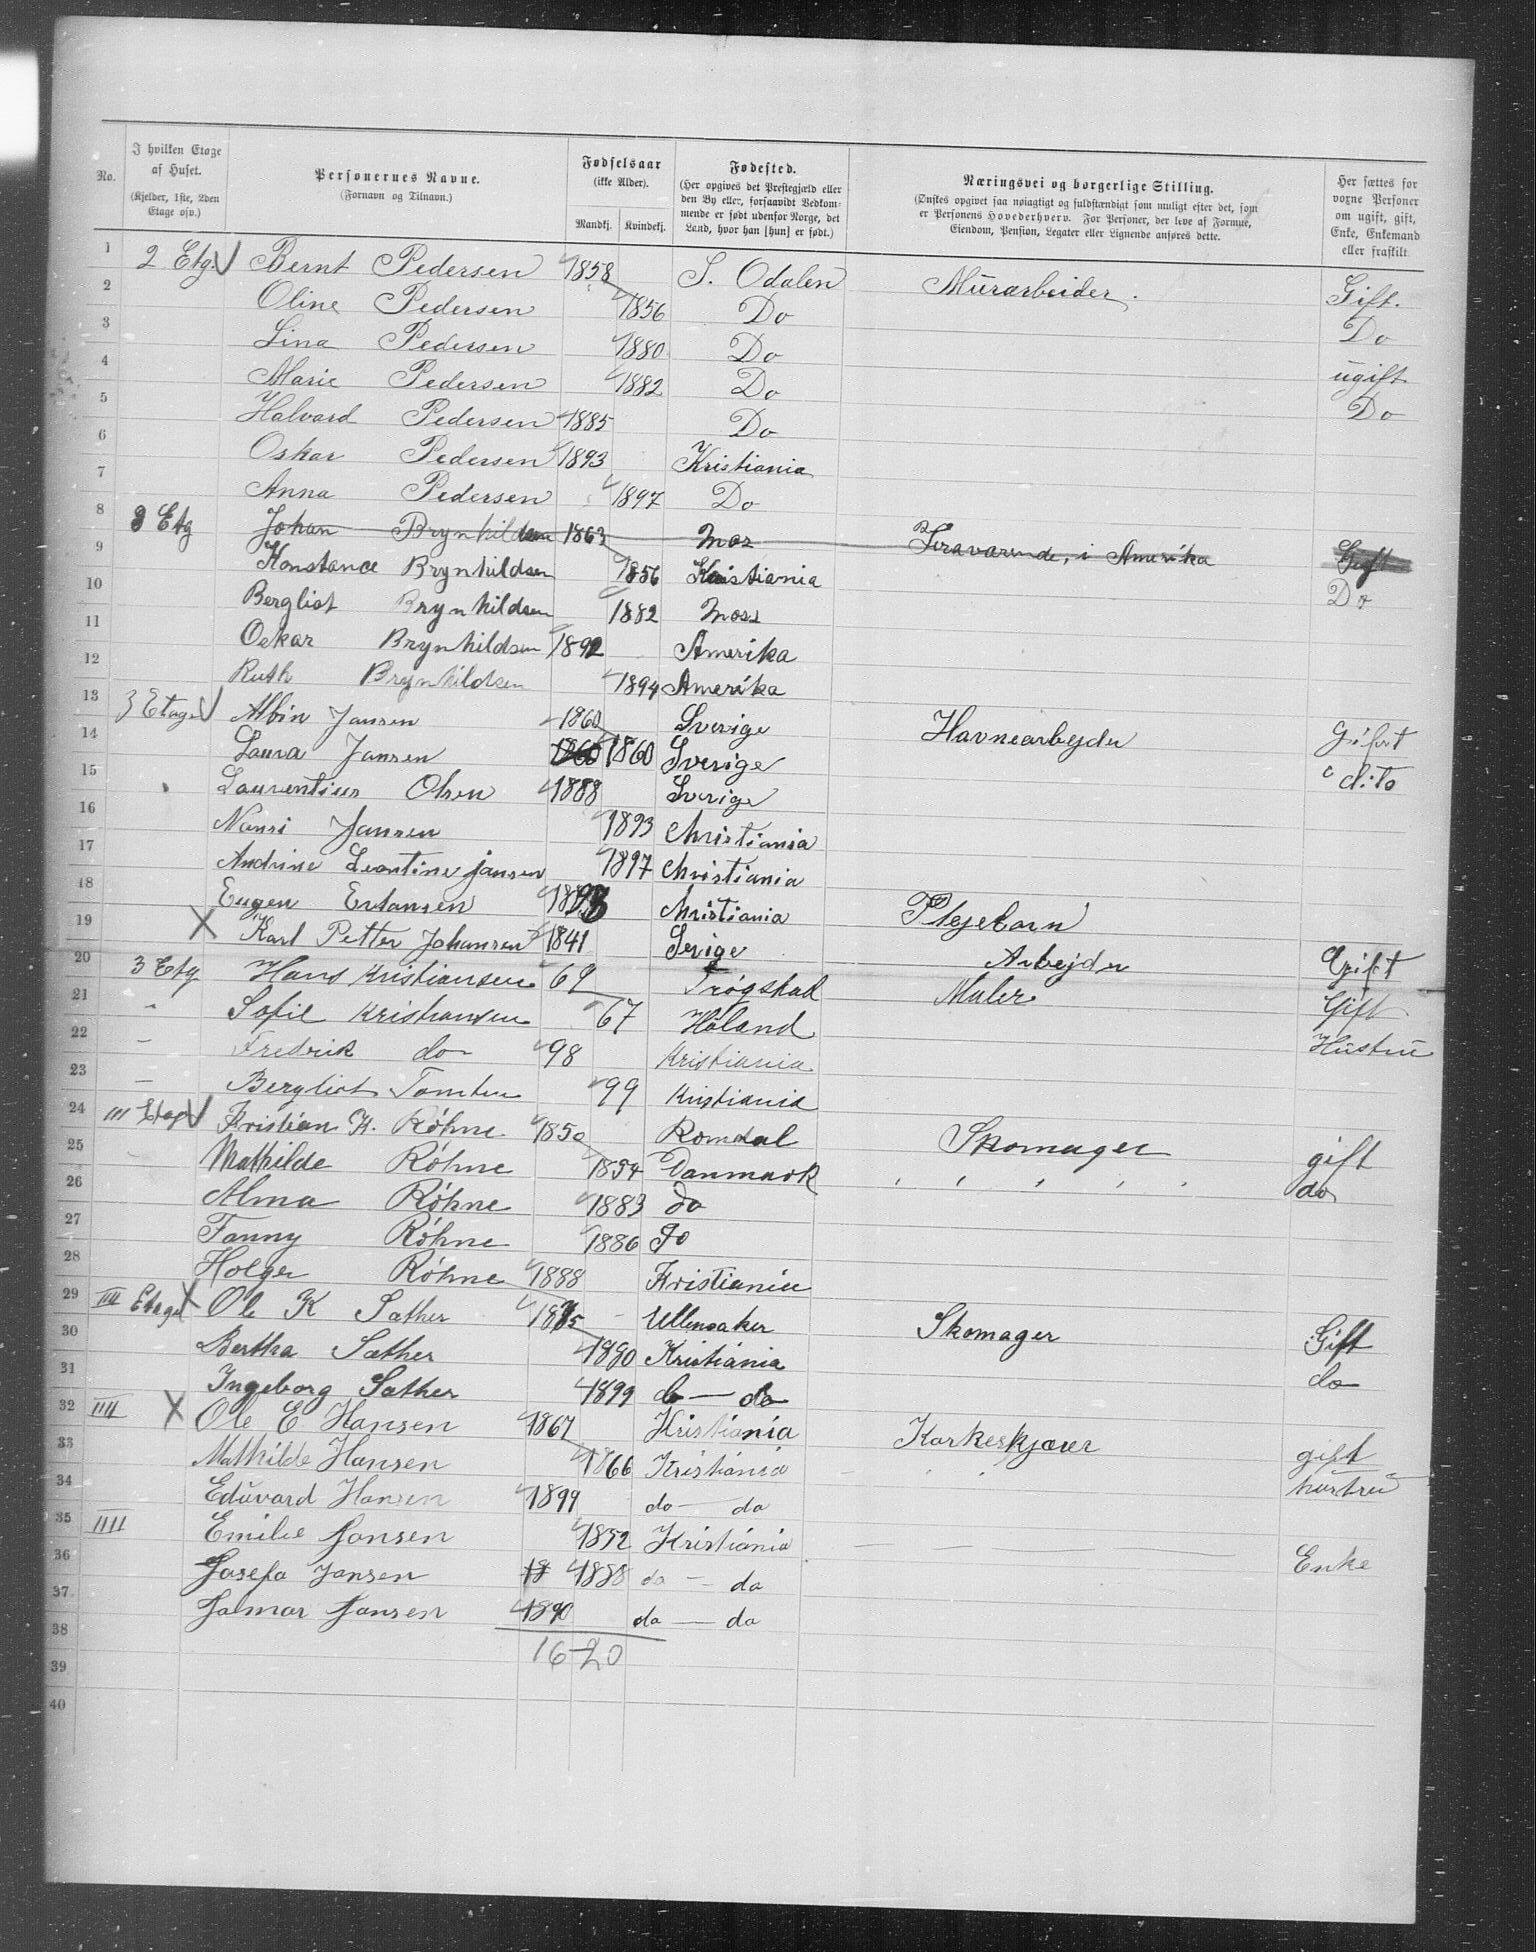 No.
I hvilken Etage af Huset.
(Kjelder, 1ste, 2den Etage osv.)
Personernes Navne.
(Fornavn og Tilnavn.)
Fødselsaar
(ikke Alder).
Mandkj. Kvindekj.
Fødested.
(Her opgives det Prestegjæld eller den By eller, forsaavidt Vedkommende er født udenfor Norge, det Land, hvor han [hun] er født.)
Næringsvei og borgerlige Stilling.
(Ønskes opgivet saa nøiagtigt og fuldstændigt som muligt efter det, som er Personens Hovederhverv. For Personer, der leve af Formue, Eiendom, Pension, Legater eller Lignende anføres dette.
Her sættes for voxne Personer om ugift, gift, Enke, Enkemand eller fraskilt.
1 2 Etg. Bernt Pedersen 1858 S. Odalen Murarbeider. Gift.
2 Oline Pedersen 1856 Do Do
3 Lina Pedersen 1880 Do ugift
4 Marie Pedersen 1882 Do Do
5 Halvard Pedersen 1885 Do
6 Oskar Pedersen 1893 Kristiania
7 Anna Pedersen 1897 Do
8 3 Etg Johan Brynhildsen 1863 Mos Fraværende, i Amerika Gift
9 Konstance Brynhildsen 1856 Kristiania Do
10 Bergliot Brynhildsen 1882 Moss
11 Oskar Brynhildsen 1892 Amerika
12 Ruth Brynhildsen 1894 Amerika
13 3 Etage Albin Jansen 1860 Sverige Havnearbejder Gift
14 Laura Jansen 1860 Sverige dito
15 Laurentius Olsen 1888 Sverige
16 Nansi Jansen 1893 Christiania
17 Andrine Leontine Jansen 1897 Christiania
18 Eugen Christiania Plejebarn
19 X Karl Petter Johansen 1841 Serige Arbejder Gift
20 3 Etg Hans Kristiansen 69 Trøgstad Maler Gift
21 " Sofie Kristiansen 67 Høland Hustru
22 - Fredrik do 98 Kristiania
23 - Bergliot Tomter 99 Kristiania
24 III Etage Kristian K. Röhne 1850 Romdal Skomager gift
25 Mathilde Röhne 1854 Danmark " " " " " do
26 Alma Röhne 1883 do
27 Fanny Röhne 1886 do
28 Holger Röhne 1888 Kristiania
29 III Etage X Ole K Sæther 1875 Ullensaker Skomager Gift
30 Bertha Sæther 1880 Kristiania do
31 Ingeborg Sæther 1899 do — do
32 IIII X Ole E Hansen 1867 Kristiania Korkeskjærer gift
33 Mathilde Hansen 1866 Kristiania hustru
34 Eduvard Hansen 1899 do — do
35 IIII Emilie Jansen 1852 Kristiania — — — — Enke
36 Josefa Jansen 18 1888 do — do
37 Jalmar Jansen 1890 do — do
38 16-20
39
40